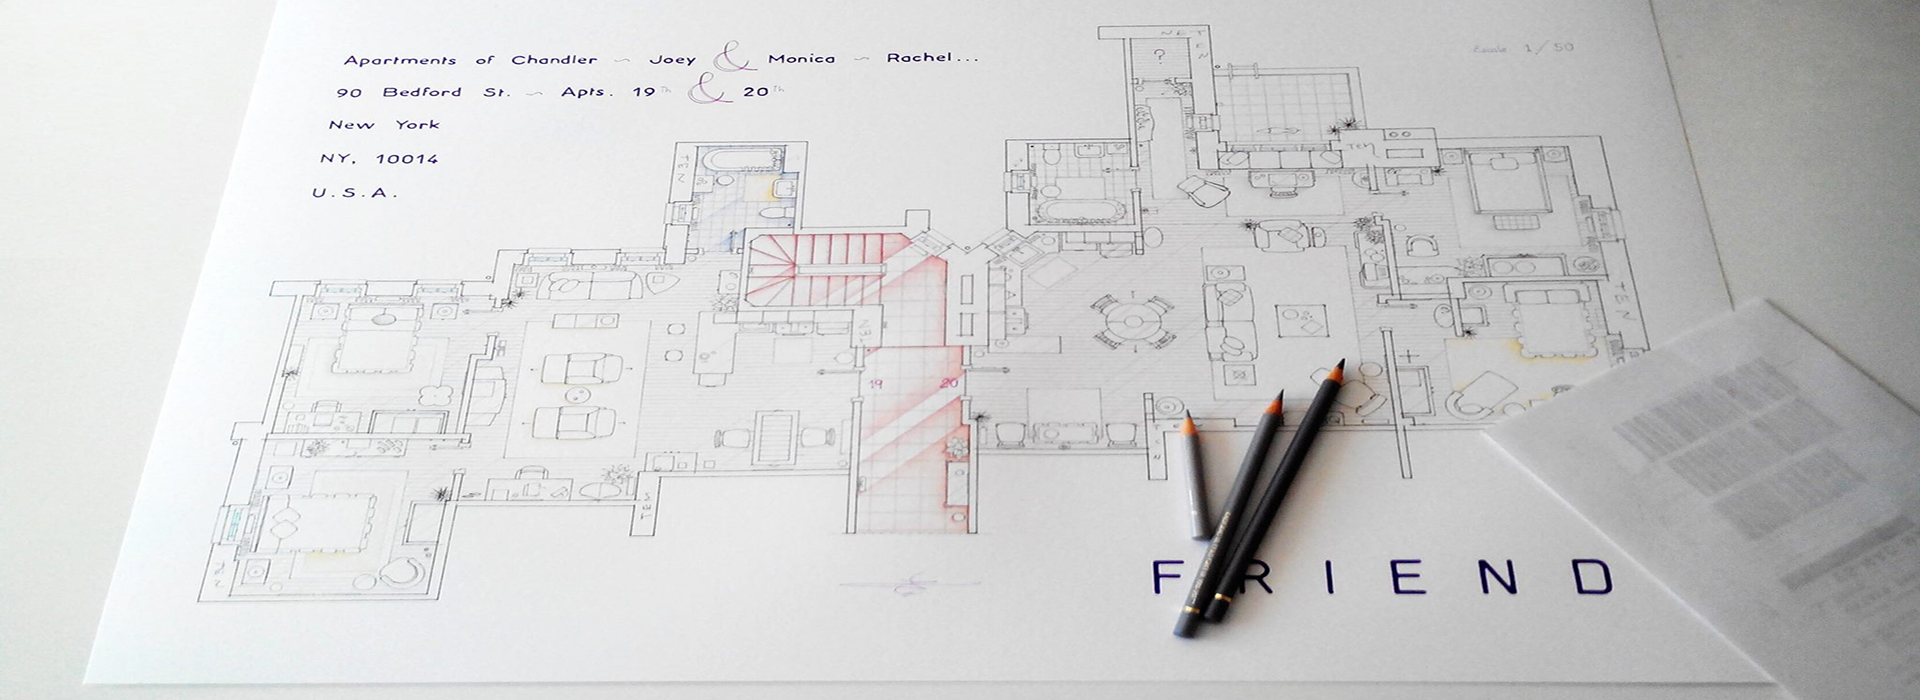 Apartments of Chandler ~ Joey & Monica ~ Rachel...
90 Bedford St. ~ Apts. 19Th & 20Th
New York
NY, 10014
U.S.A.
Escala 1/50
?
19 20
FRIEND